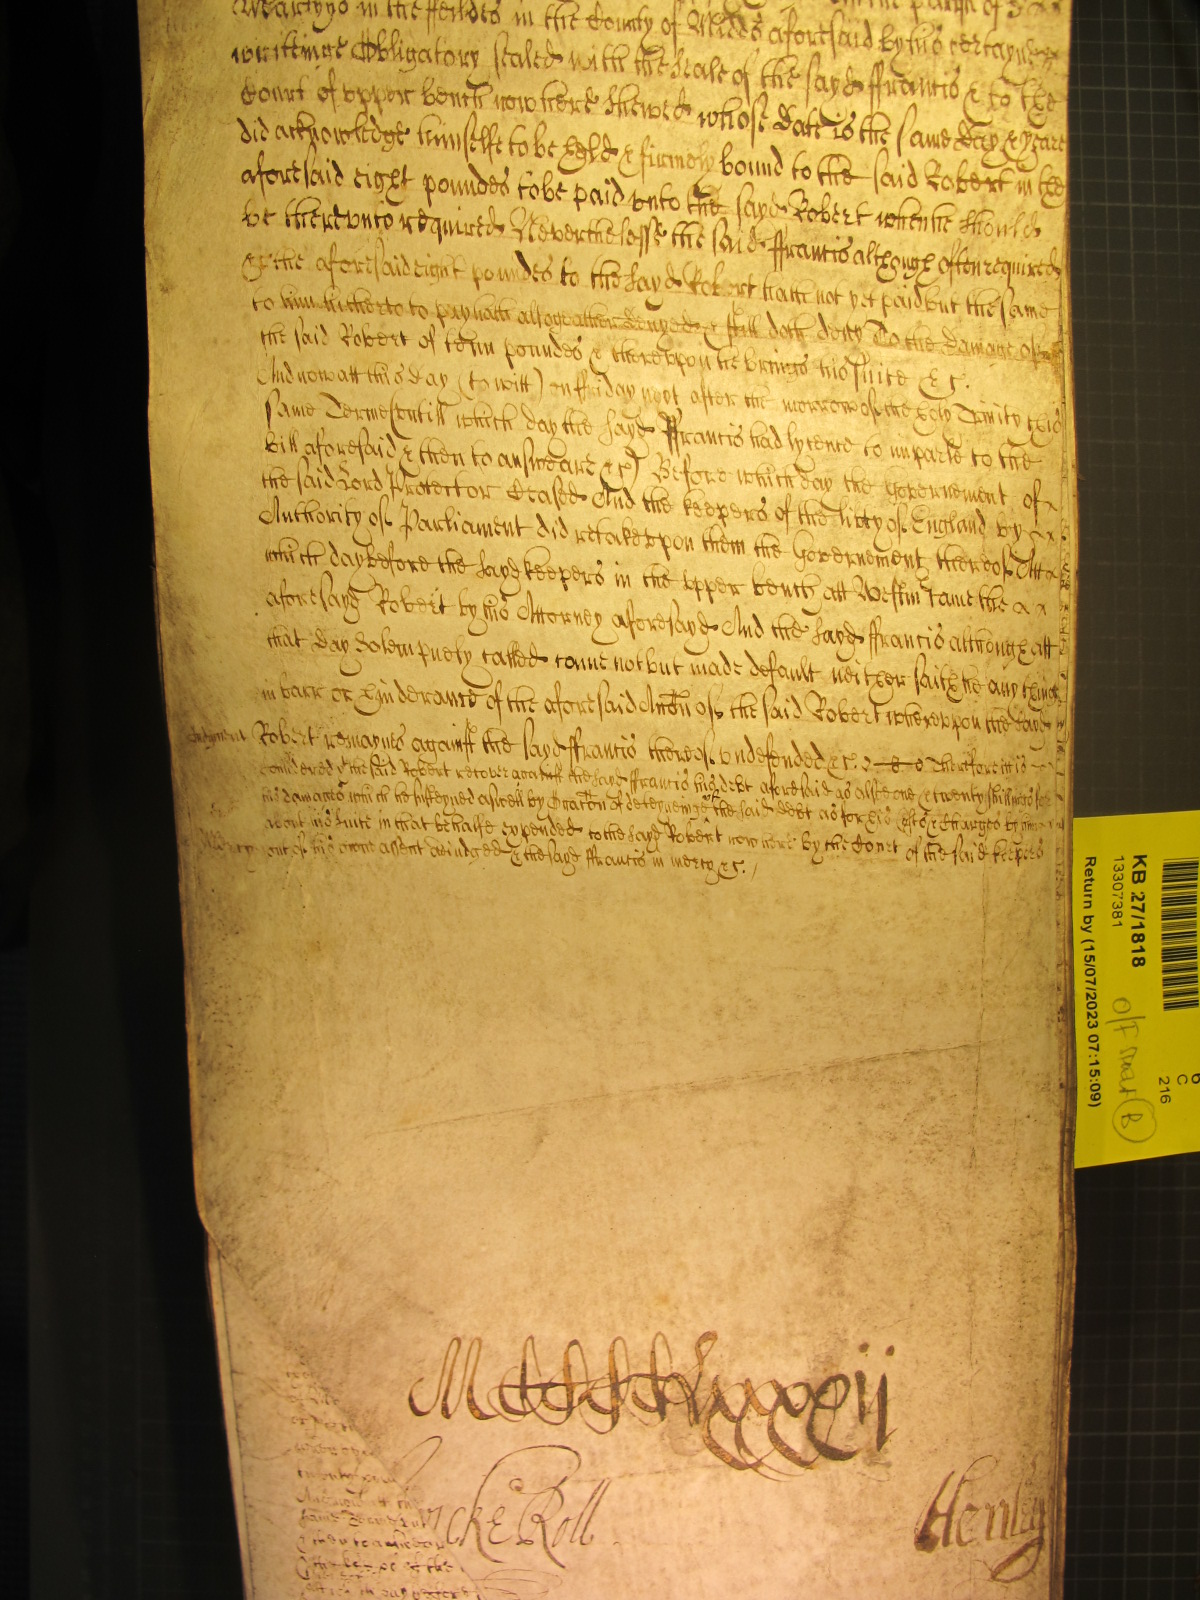 Martyns in the ffeildes in the County of Midds aforesaid by his certayne
writtinge Obligatory sealed with the seale of the sayd ffrancis & to the
Court of upper bench now here shewed whose date is the same day & yeare
did acknowledge himselfe to be held & firmely bound to the said Robert in the
aforesaid eight poundes to be paid unto the sayd Robert when he should
be thereunto required Neverthelesse the said ffrancis although often required
the aforesaid eight poundes to the sayd Robert hath not yet paid but the same
to him hitherto to pay hath altogeather denyed & still doth deny To the damage of
the said Robert of tenn poundes & thereupon he brings his suite &c.
And now att this day (to witt) on ffriday next after the morrow of the holy Trinity this
same Terme (untill which day the sayd ffrancis had lycence to imparle to the
bill aforesaid & then to answeare &c) Before which day the Governement of
the said Lord Protector Ceased And the keepers of the libty of England by
Authority of Parliament did retake upon them the Governement thereof Att
which day before the sayd keepers in the upper bench att Westm came the
aforesayd Robert by his Attorney aforesayd And the sayd ffrancis although att
that day Solempnely called came not but made default neither saith he any thing
in barr or hinderance of the aforesaid Accon of the said Robert whereupon the sayd
Judgment Robert remaynes against the sayd ffrancis thereof undefended &c Therefore itt is
considered that the said Robert recover against the sayd ffrancis his debt aforesaid as alsoe one & twenty shillings for
his damages which he susteyned aswell by Occacon of deteyneing the said debt as for his costs & charges by him
about his suite in that behalfe expended to the sayd Robert now here by the Court of the said keepers
Mercy out of his owne assent adiudged & the sayd ffrancis in mercy &c.
Mccccclxxxxii
Roll
Henley
KB 27/1818
13307381
Return by (15/07/2023 07:15:09)
6
C
216
B